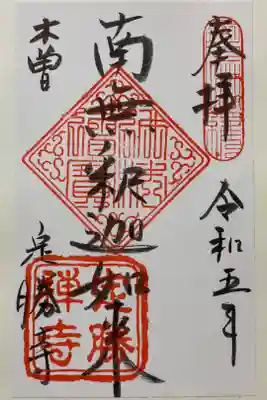 奉拝
令和五年
南無釈迦如来
木曽
定勝寺
佛法僧寶
定勝
禅寺